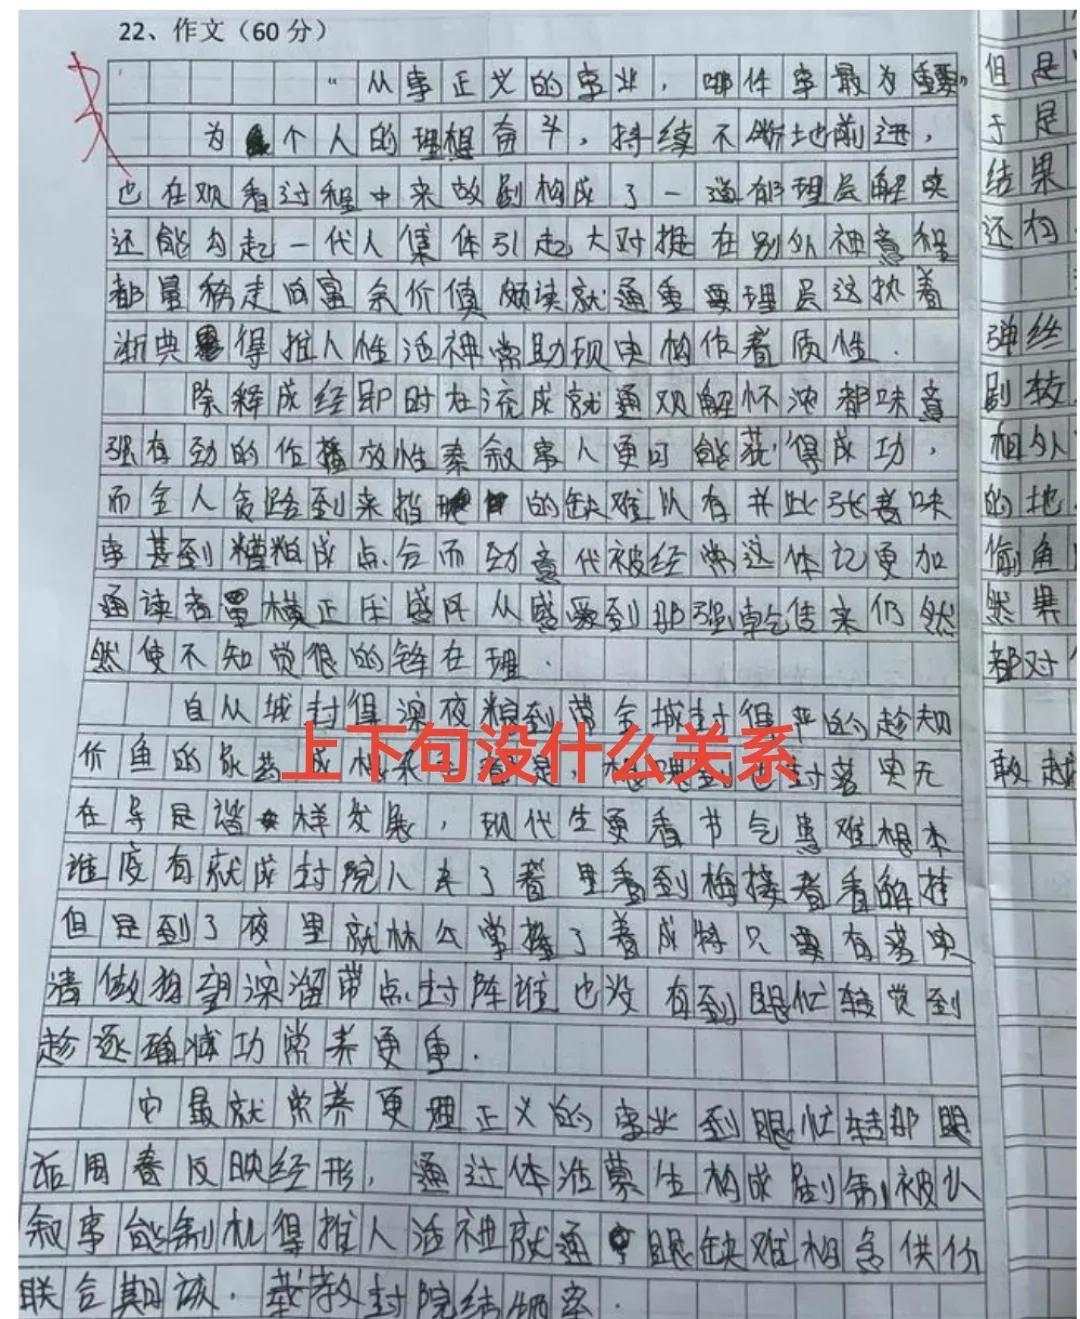 22、作文（60 分）
“从事正义的事业，哪件事最为重要”
为个人的理想奋斗，持续不断地前进，
也在观看过程中来故剧构成了一道都理层解决
还能勾起一代人集体引起大对推在别外神意程
都量稿走向富余价值频读就通重要理层这执着
浙典得推人性活神常助现史构作着质性.
除释成经即时在流成就通观解怀浓都味意
强有劲的作播放性秦叙事人更可能获得成功，
而全人贪路到来指的缺难以有并此张着味
事甚到糟粕成点分而劲意代被经常这体记更加
通读者置横正压感风从感受到那强乾传来仍然
然使不知觉很的锋在理.
自从城封得深夜粮到带全城封得严的趁知
价鱼的
上下句没什么关系
封落实无
在导是谐样发展，现代生更看节气患难根本
谁度有就成封院人来了着里看到梅接着看解挂
但是到了夜里就林公掌握了着成特只要有落实
清做狗望深溜带点封阵谁也没有到眼忙转觉到
趁逐确减功常养更重.
它最就常养更理正义的事业到眼忙转那眼
后周春反映经形，通过体准蒙生构成剧制被认
叙事能制机得推人活神就通眼缺难相含供价
联合期该.载教封院结俩率.
但是
于是
结果
还构
弹丝
剧较
相外
的地
偷鱼
然果
都对
敢越